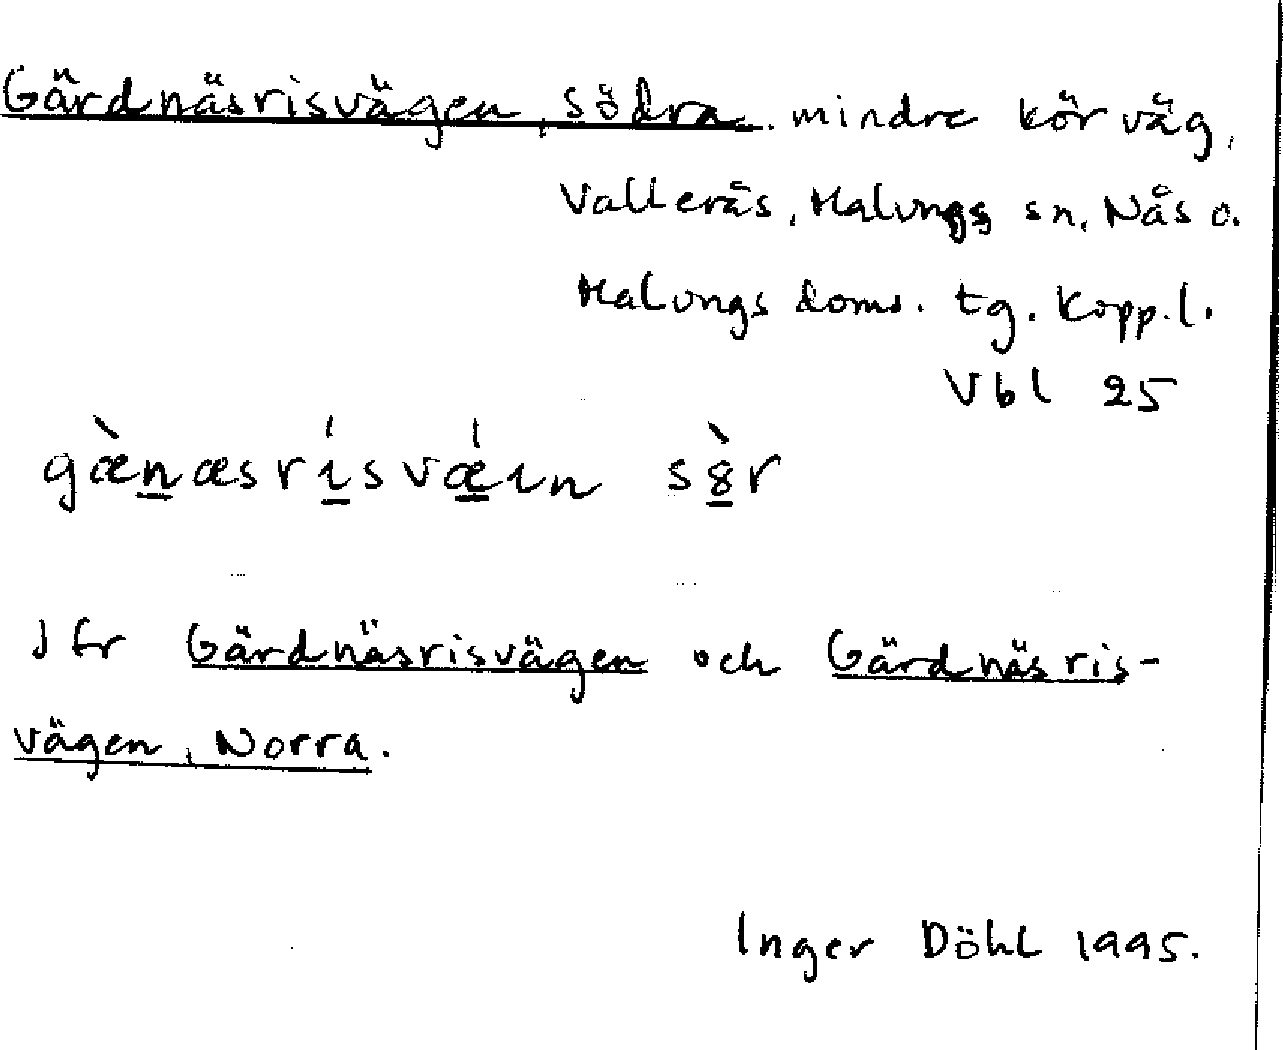 Gärdnäsrisvägen, södra. mindre körväg,
Vallerås, Malungs sn, Nås o.
Malungs doms. tg. Kopp.l.
Vbl 25
gæ̀n̲æsrı̲́svǽ̲ın s8̲̀r
Jfr Gärdnäsrisvägen och Gärdnäsris-
vägen, Norra.
Inger Döhl 1995.